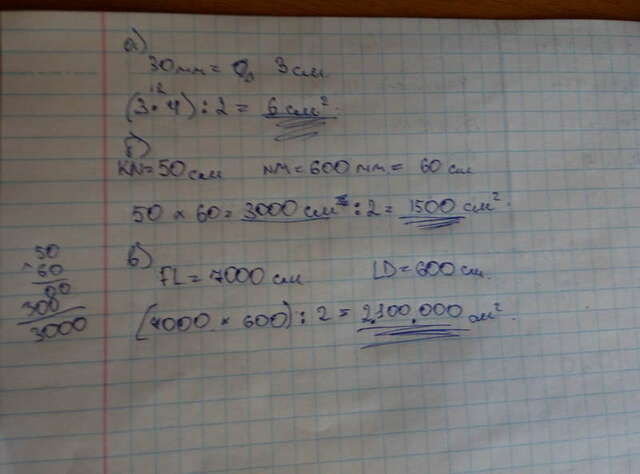 а)
30 мм = 3 см
12
(3 · 4) : 2 = 6 см²
б)
KN = 50 см NM = 600 мм = 60 см
50 × 60 = 3000 см² : 2 = 1500 см²
в)
FL = 7000 см LD = 600 см
(7000 × 600) : 2 = 2.100.000 см²
50
× 60
00
300
3000